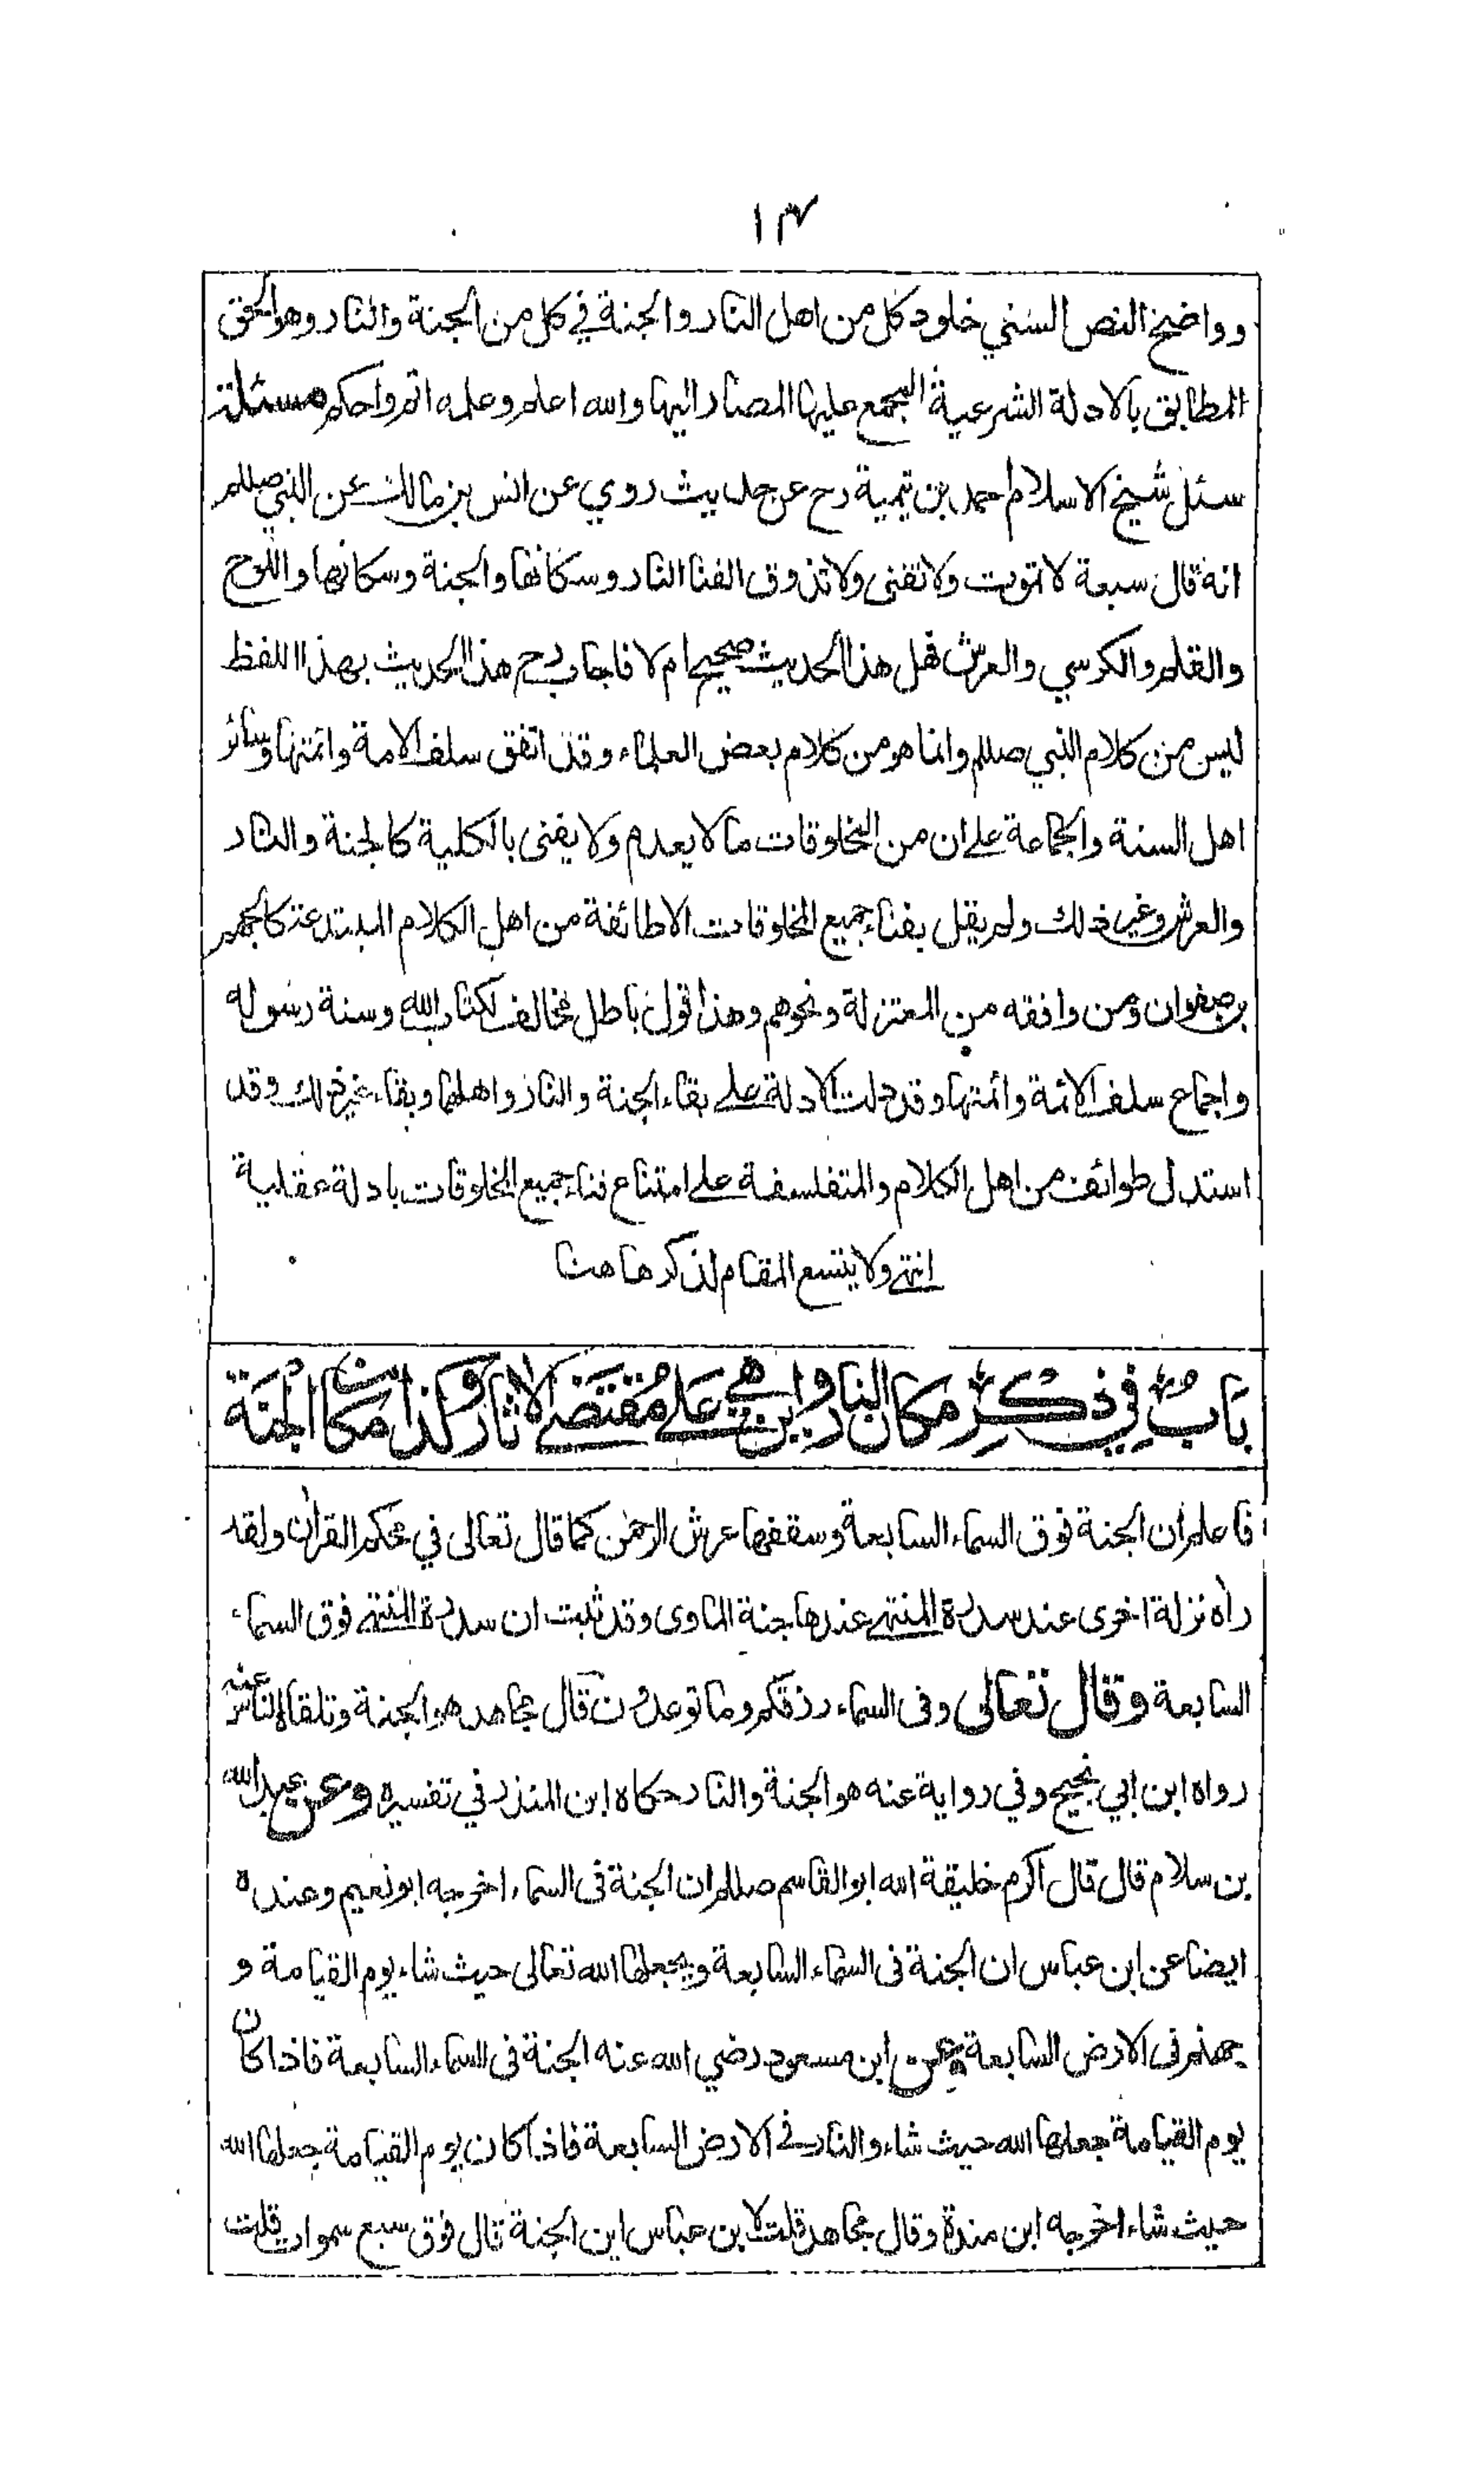 ١٣
وواضح النص السني خلود كل من اهل النار والجنة في كل من الجنة والنار وهو الحق
المطابق بالادلة الشرعية المجمع عليها المصار اليها والله اعلم وعلمه اتم واحكم مسئلة
سئل شيخ الاسلام احمد بن تيمية رح عن حديث روي عن انس بن مالك عن النبي صللم
انه قال سبعة لا تموت ولا تفنى ولا تذوق الفنا النار وسكانها والجنة وسكانها واللوح
والقلم والكرسي والعرش فهل هذا الحديث صحيح ام لا فاجاب رح هذا الحديث بهذا اللفظ
ليس من كلام النبي صللم وانما هو من كلام بعض العلماء وقد اتفق سلف الامة وائمتها وسائر
اهل السنة والجماعة على ان من المخلوقات ما لا يعدم ولا يفنى بالكلية كالجنة والنار
والعرش وغير ذلك ولم يقل بفناء جميع المخلوقات الا طائفة من اهل الكلام المبتدعة كالجهم
بن صفوان ومن وافقه من المعتزلة ونحوهم وهذا قول باطل مخالف لكتاب الله وسنة رسوله
واجماع سلف الائمة وائمتها وقد دلت الادلة على بقاء الجنة والنار واهلها وبقاء غير ذلك وقد
استدل طوائف من اهل الكلام والمتفلسفة على امتناع فناء جميع المخلوقات بادلة عقلية
انتهى ولا يتسع المقام لذكرها هنا
بَابٌ فِي ذكرِ مكان النار واين هي عَلى مُقتضى الاثار وكذا مكان الجَنَة
فاعلم ان الجنة فوق السماء السابعة وسقفها عرش الرحمن كما قال تعالى في محكم القران ولقد
راه نزلة اخرى عند سدرة المنتهى عندها جنة الماوى وقد ثبت ان سدرة المنتهى فوق السماء
السابعة وقال تعالى وفى السماء رزقكم وما توعدون قال مجاهد هو الجنة وتلقاه الناس عنه
رواه ابن ابي نجيح وفي رواية عنه هو الجنة والنار حكاه ابن المنذر في تفسيره وعن عبد الله
بن سلام قال قال اكرم خليقة الله ابو القاسم صللم ان الجنة فى السماء اخرجه ابو نعيم وعنده
ايضا عن ابن عباس ان الجنة فى السماء السابعة ويجعلها الله تعالى حيث شاء يوم القيامة و
جهنم فى الارض السابعة وعن ابن مسعود رضي الله عنه الجنة فى السماء السابعة فاذا كان
يوم القيامة جعلها الله حيث شاء والنار في الارض السابعة فاذا كان يوم القيامة جعلها الله
حيث شاء اخرجه ابن مندة وقال مجاهد قلت لابن عباس اين الجنة قال فوق سبع سموات قلت